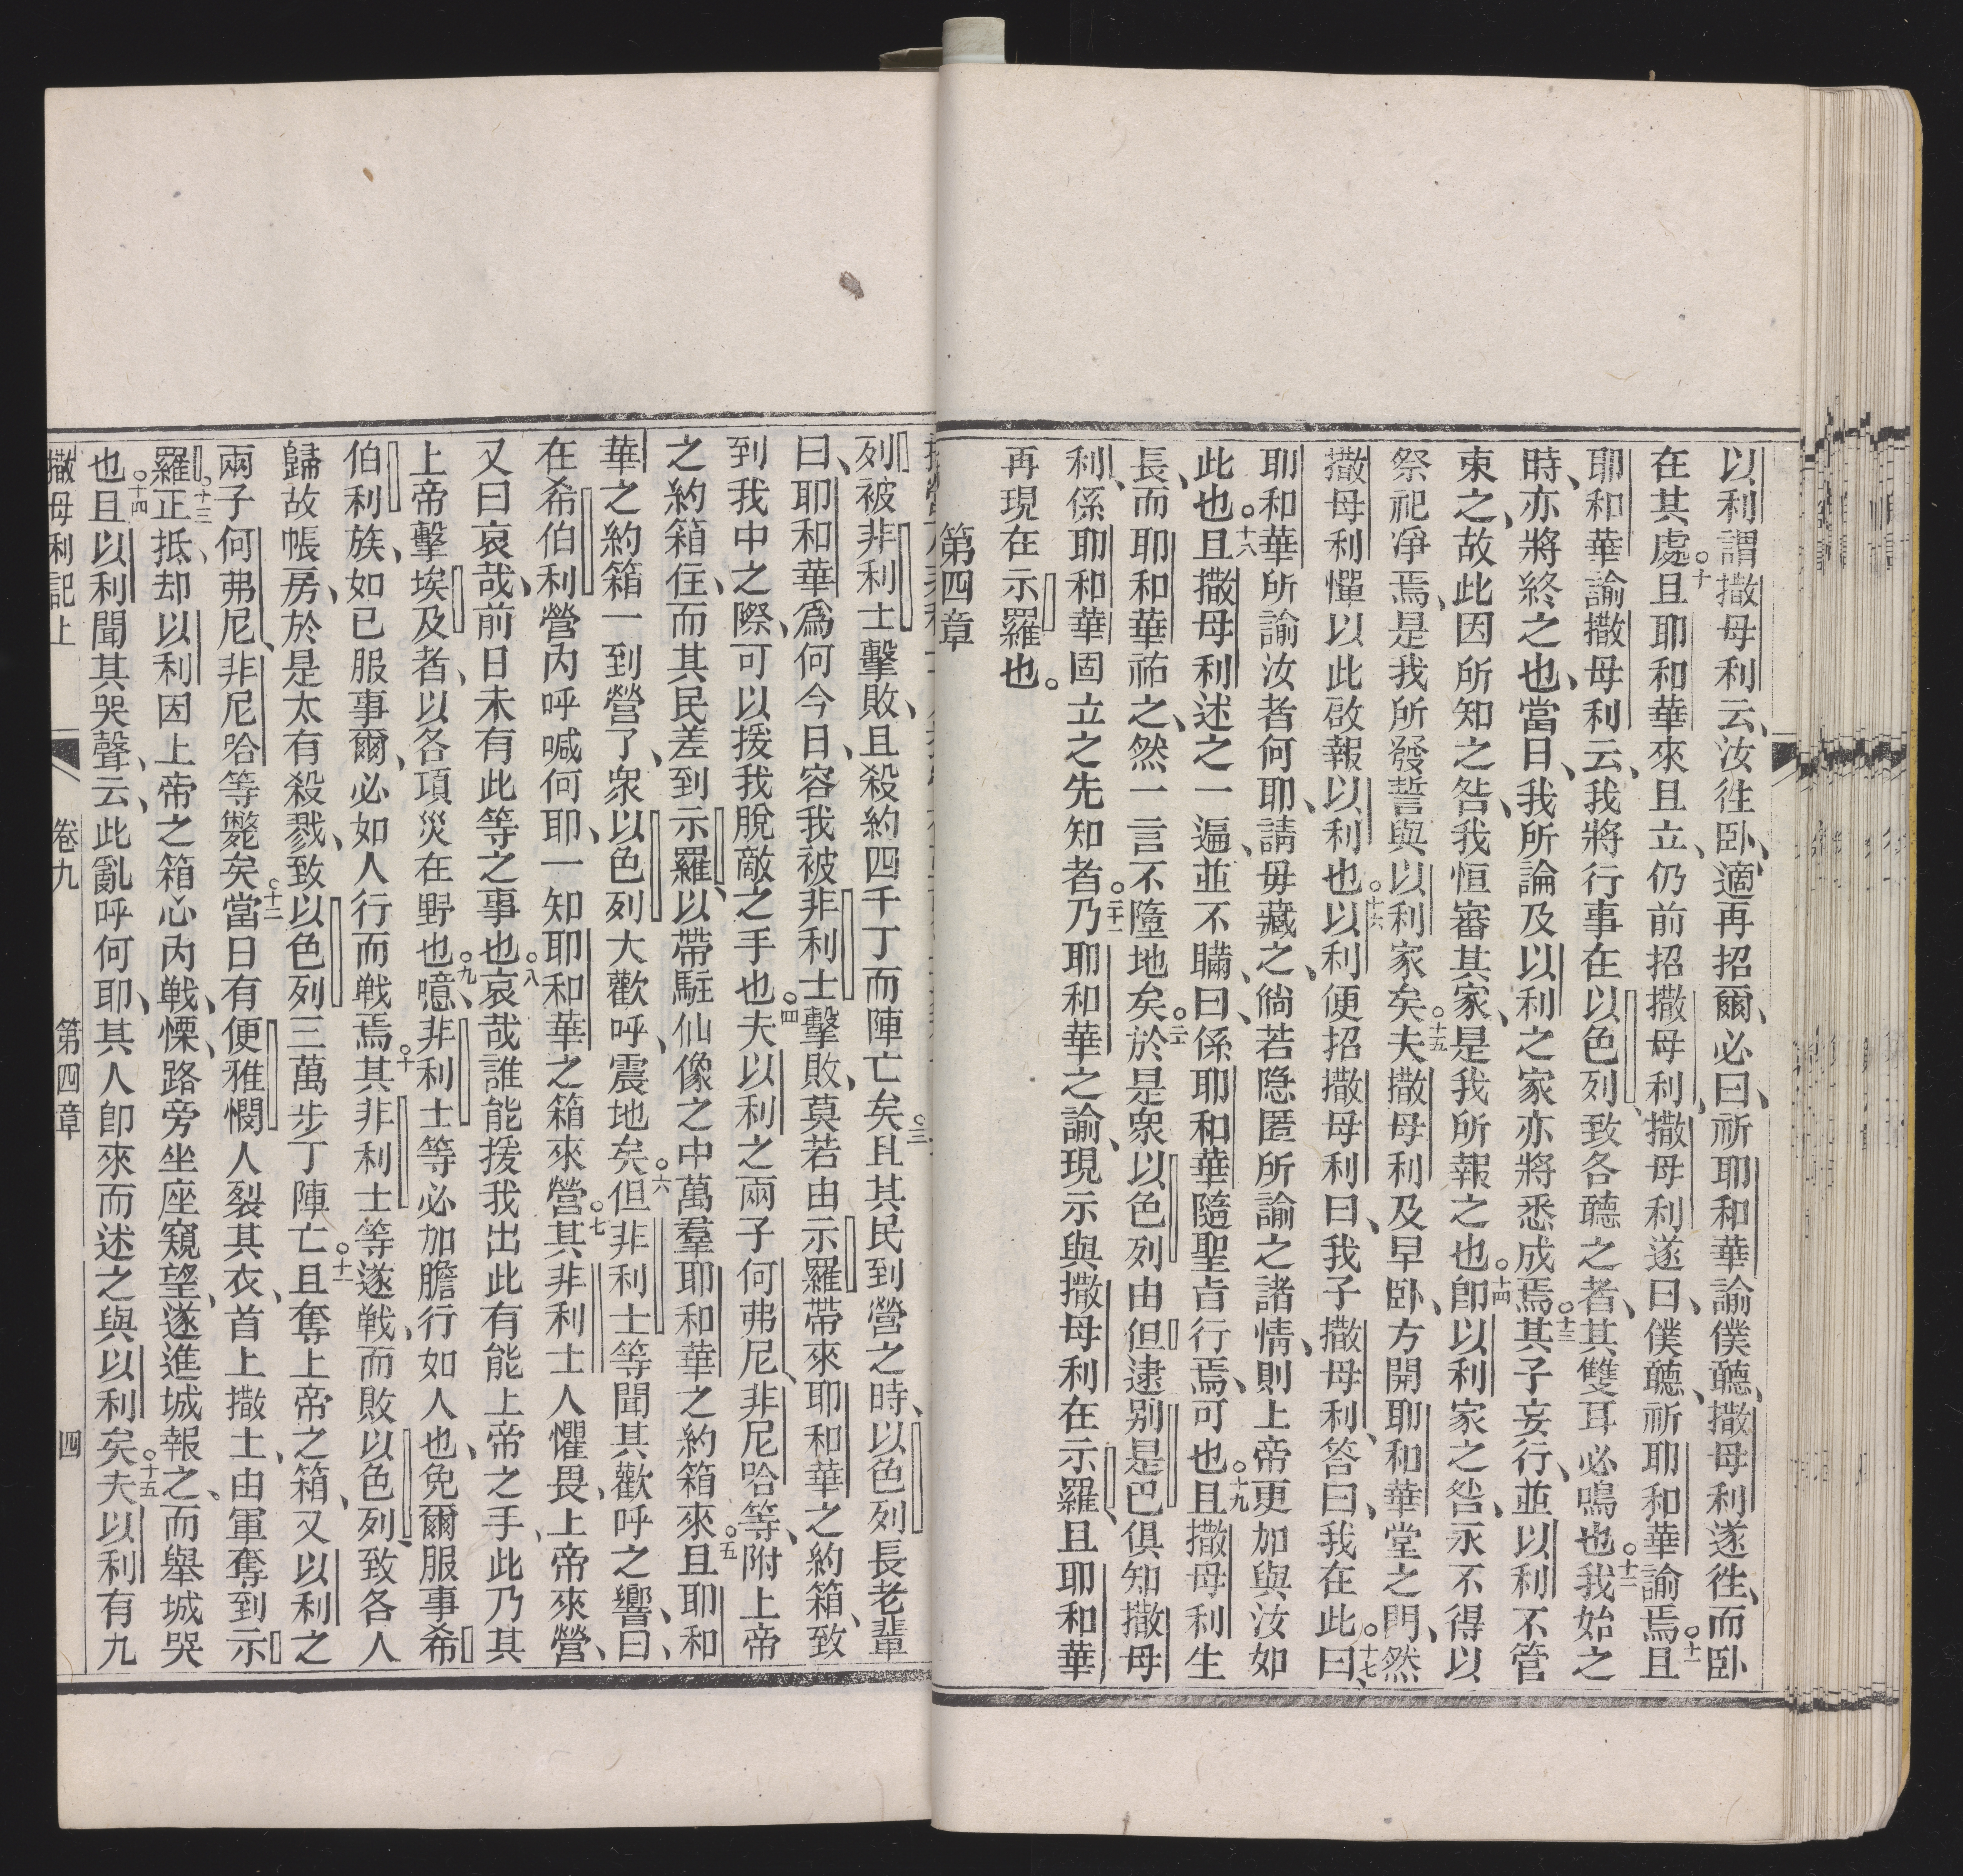 以利謂撒母利云、汝徃卧、適再招爾、必曰、祈耶和華諭僕聽、撒母利遂徃、而卧
在其處。十且耶和華來且立、仍前招撒母利、撒母利遂曰、僕聽、祈耶和華諭焉。十一且
耶和華諭撒母利云、我將行事在以色列、致各聽之者、其雙耳必鳴也。十二我始之
時、亦將終之也、當日、我所論及以利之家亦將悉成焉。十三其子妄行、並以利不管
束之、故此因所知之咎、我恒審其家、是我所報之也。十四卽以利家之咎、永不得以
祭祀淨焉、是我所發誓與以利家矣。十五夫撒母利及早卧、方開耶和華堂之門、然
撒母利憚以此啟報以利也。十六以利便招撒母利曰、我子撒母利、答曰、我在此。十七曰、
耶和華所諭汝者何耶、請毋藏之、倘若隐匿所諭之諸情、則上帝更加與汝如
此也。十八且撒母利述之一遍、並不瞞、曰、係耶和華隨聖旨行焉、可也。十九且撒母利生
長、而耶和華祐之、然一言不墮地矣。二十於是衆以色列由但逮別是巴俱知撒母
利、係耶和華固立之先知者。二十一乃耶和華之諭、現示與撒母利在示羅、且耶和華
再現在示羅也。
第四章
列被非利士擊敗、且殺約四千丁而陣亡矣。三且其民到營之時、以色列長老輩
曰、耶和華爲何今日、容我被非利士擊敗、莫若由示羅帶來耶和華之約箱、致
到我中之際、可以援我脫敵之手也。四夫以利之兩子何弗尼、非尼哈等、附上帝
之約箱住、而其民差到示羅、以帶駐仙像之中萬羣耶和華之約箱來。五且耶和
華之約箱一到營了、衆以色列大歡呼、震地矣。六但非利士等聞其歡呼之響、曰、
在希伯利營內呼喊何耶、一知耶和華之箱來營。七其非利士人懼畏、上帝來營、
又曰哀哉、前日未有此等之事也。八哀哉誰能援我出此有能上帝之手、此乃其
上帝擊埃及者、以各項災在野也。九噫、非利士等必加膽行如人也、免爾服事希
伯利族、如已服事爾、必如人行而戦焉。十其非利士等遂戦、而敗以色列、致各人
歸故帳房、於是太有殺戮、致以色列三萬步丁陣亡。十一且奪上帝之箱、又以利之
兩子何弗尼、非尼哈等斃矣。十二當日有便雅憫人裂其衣、首上撒土、由軍奪到示
羅。十三正抵、却以利因上帝之箱心內戦慄、路旁坐座窺望、遂進城報之、而舉城哭
也。十四且以利聞其哭聲、云、此亂呼何耶、其人卽來而述之與以利矣。十五夫以利有九
撒母利記上 卷九 第四章 四